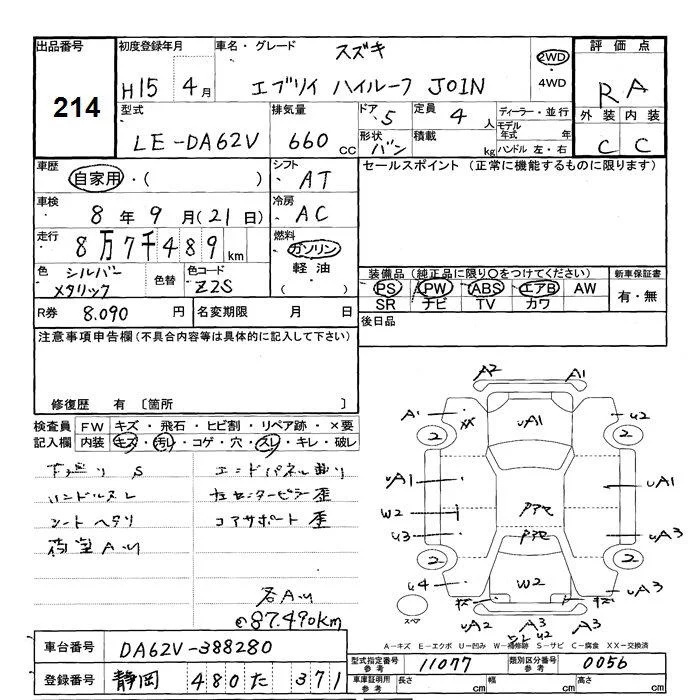 出品番号
214
初度登録年月
H15 4月
車名・グレード
スズキ
エブリイ ハイルーフ JOIN
2WD
・
4WD
評価点
R A
外装 内装
C C
型式
LE-DA62V
排気量
660 cc
ドア 5
形状 バン
定員 4 人
積載 kg
ディーラー・並行
モデル年式 年
ハンドル 左・右
車歴
自家用・( )
シフト
AT
セールスポイント (正常に機能するものに限ります)
車検
8年9月(21日)
冷房
AC
走行
8万7千489km
燃料
ガソリン
軽油
( )
色
シルバーメタリック
色替
色コード
Z2S
装備品(純正品に限り○をつけてください)
PS PW ABS エアB AW
SR ナビ TV カワ
新車保証書
有・無
R券 8.090 円
名変期限 月 日
後日品
注意事項申告欄(不具合内容等は具体的に記入して下さい)
修復歴 有 〔箇所 〕
検査員記入欄
FW キズ・飛石・ヒビ割・リペア跡・×要
内装 キズ・汚レ・コゲ・穴・スレ・キレ・破レ
下廻り S
ハンドルスレ
シートヘタリ
荷室AU
エンドパネル曲り
左センターピラー歪
コアサポート歪
各AU
@87.490km
A2 A1
A1 XX UA1 U2
2 2
UA1 A1
W2
U3 UA3
2 2
U4 W2 A3
スペア
UA2 A3 UA3
U2
A-キズ E-エクボ U-凹み W-補修跡 S-サビ C-腐食 XX-交換済
車台番号 DA62V-388280
登録番号 静岡 480 た 371
型式指定番号 参考 11077
類別区分番号 参考 0056
車庫証明用 参考
長さ cm
幅 cm
高さ cm